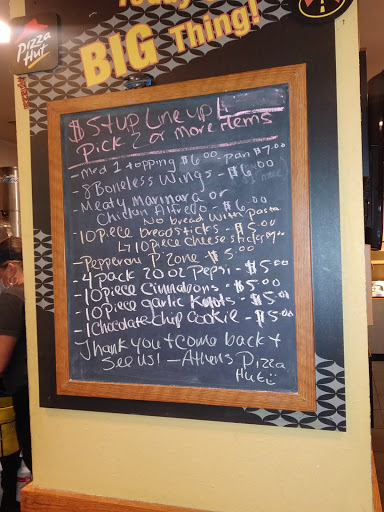 Today's
BIG Thing!
Pizza
Hut
$5+up Line up
Pick 2 or more items
- Med 1 topping $6.00 - pan $7.00
- 8 Boneless Wings - $6.00
- Meaty Marinara or
Chicken Alfredo - $6.00
No bread with Pasta
- 10 Piece breadsticks - $5.00
↳ 10 piece cheese sticks
- Pepperoni P'Zone - $5.00
- 4 pack 20 oz Pepsi - $5.00
- 10 piece Cinnabons - $5.00
- 10 piece garlic Knots - $5.00
- 1 Chocolate Chip Cookie - $5.00
Thank you + Come back +
See us! - Athens Pizza
Hut :)